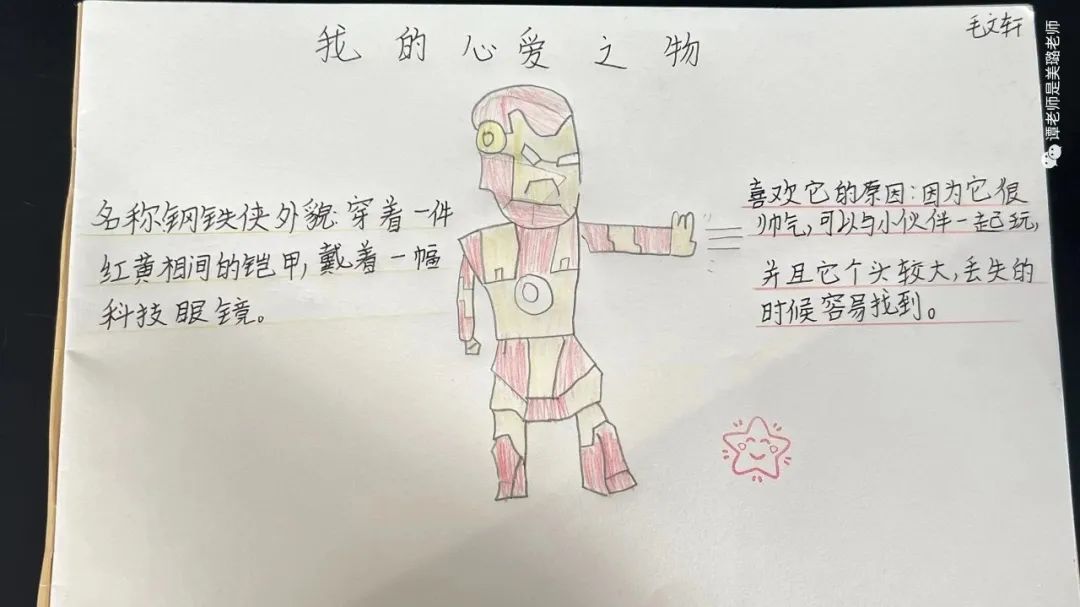 我的心爱之物
毛文轩
谭老师是美璐老师
名称:钢铁侠 外貌:穿着一件
红黄相间的铠甲,戴着一幅
科技眼镜。
喜欢它的原因:因为它很
帅气,可以与小伙伴一起玩,
并且它个头较大,丢失的
时候容易找到。